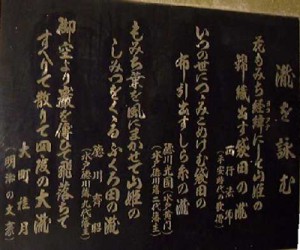 瀧を詠む
花もみち経緯にして山姫の
錦織出す袋田の瀧
西行法師
(平安時代の歌僧)
いつの世につゝみこめけむ袋田の
布引出すしら糸の瀧
徳川光圀(水戸黄門)
(水戸徳川第二代藩主)
もみち葉を風にまかせて山姫の
しみつをくゝるふくろ田の瀧
徳川斉昭
(水戸徳川第九代藩主)
御空より巌を傳ひて飛落ちて
すべかて散りて四度の大瀧
大町桂月
(明治の文豪)